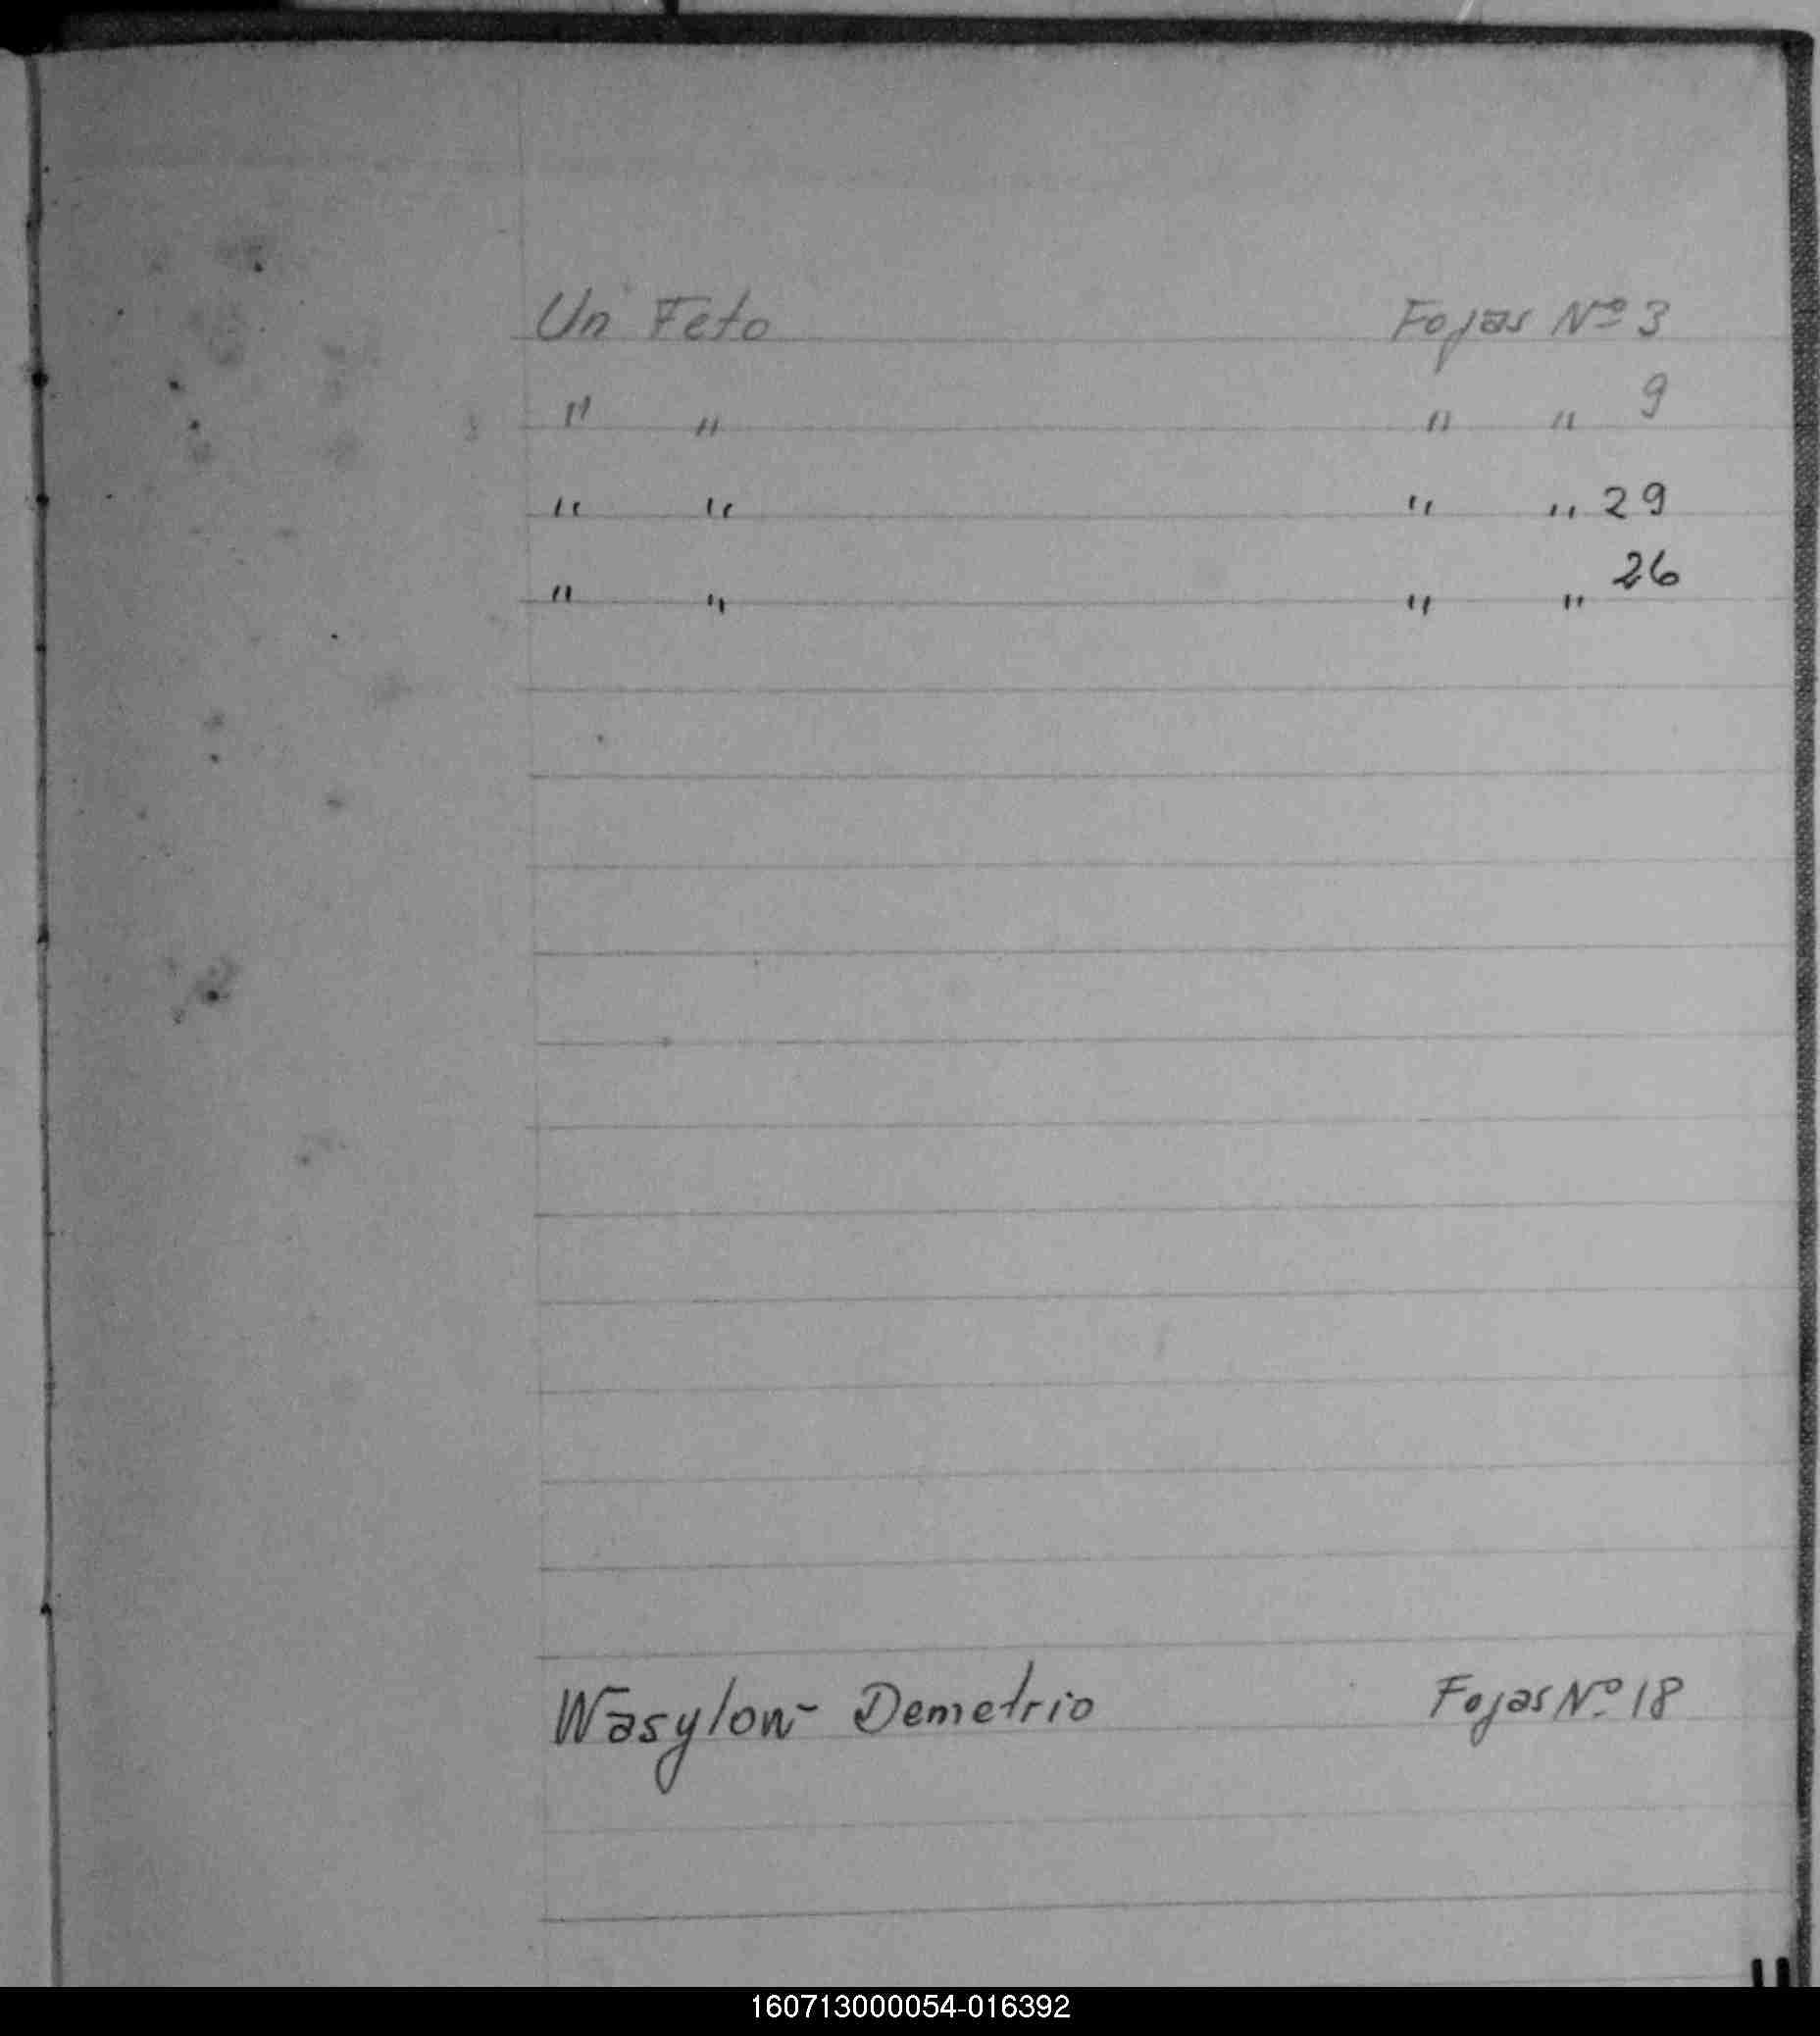 Un Feto Fojas Nº 3
" " " " 9
" " " " 29
" " " " 26
Wasylow Demetrio Fojas Nº 18
160713000054-016392